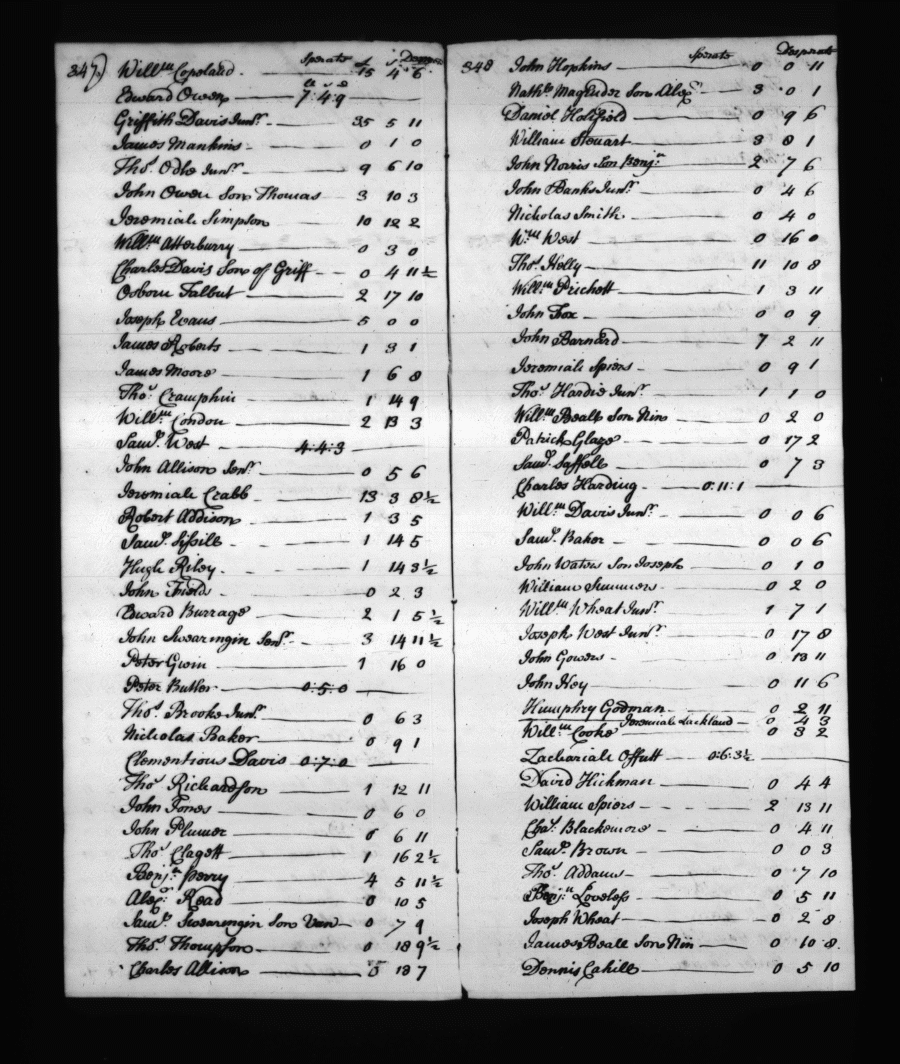 347) Sperate £ s Desperate
Will.m Copeland 15 4 6
Edward Owen £ s d 7:4:9
Griffith Davis Jun.r 35 5 11
James Mankins 0 1 0
Tho.s Odle Jun.r 9 6 10
John Owen Son Thomas 3 10 3
Jeremiah Simpson 10 12 2
Will.m Atterburry 0 3 0
Charles Davis Son of Griff 0 4 11½
Osborn Talbut 2 17 10
Joseph Evans 5 0 0
James Roberts 1 3 1
James Moore 1 6 8
Tho.s Cramphin 1 14 9
Will.m London 2 13 3
Sam.l West 4:4:3
John Allison Sen.r 0 5 6
Jeremiah Crabb 13 3 8½
Robert Addison 1 3 5
Sam.l Sissill 1 14 5
Hugh Riley 1 14 3½
John Fields 0 2 3
Edward Burrage 2 1 5½
John Swearingin Sen.r 3 14 11½
Peter Gwin 1 16 0
Peter Butler 0:5:0
Tho.s Brooke Jun.r 0 6 3
Nicholas Baker 0 9 1
Clementious Davis 0:7:0
Tho.s Richardson 1 12 11
John Jones 0 6 0
John Plumer 0 6 11
Tho.s Clagett 1 16 2½
Benj.n Perry 4 5 11½
Alex.r Read 0 10 5
Sam.l Swearengin Son Van 0 7 9
Tho.s Thompson 0 18 9½
Charles Allison 5 13 7
348 Sperate Desperate
John Hopkins 0 0 11
Nath.l Magruder Son Alex.r 3 0 1
Daniel Hollfield 0 9 6
William Steuart 3 8 1
John Norris Son Benj.n 2 7 6
John Banks Jun.r 0 4 6
Nicholas Smith 0 4 0
W.m West 0 16 0
Tho.s Helly 11 10 8
Will.m Prichett 1 3 11
John Fox 0 0 9
John Barnard 7 2 11
Jeremiah Spiers 0 9 1
Tho.s Hardie Jun.r 1 1 0
Will.m Beall Son Nin 0 2 0
Patrick Glaze 0 17 2
Sam.l Saffell 0 7 3
Charles Harding 0:11:1
Will.m Davis Jun.r 0 0 6
Sam.l Baker 0 0 6
John Waters Son Joseph 0 1 0
William Summers 0 2 0
Will.m Wheat Jun.r 1 7 1
Joseph West Jun.r 0 17 8
John Gowers 0 13 11
John Hey 0 11 6
Humphry Godman 0 2 11
Jeremiah Lackland 0 4 3
Will.m Cooke 0 3 2
Zachariah Offutt 0:6:3½
David Hickman 0 4 4
William Spiers 2 13 11
Cha.s Blackemore 0 4 11
Sam.l Brown 0 0 3
Tho.s Addams 0 7 10
Benj.n Loveless 0 5 11
Joseph Wheat 0 2 8
James Beall Son Nin 0 10 8
Dennis Cahill 0 5 10